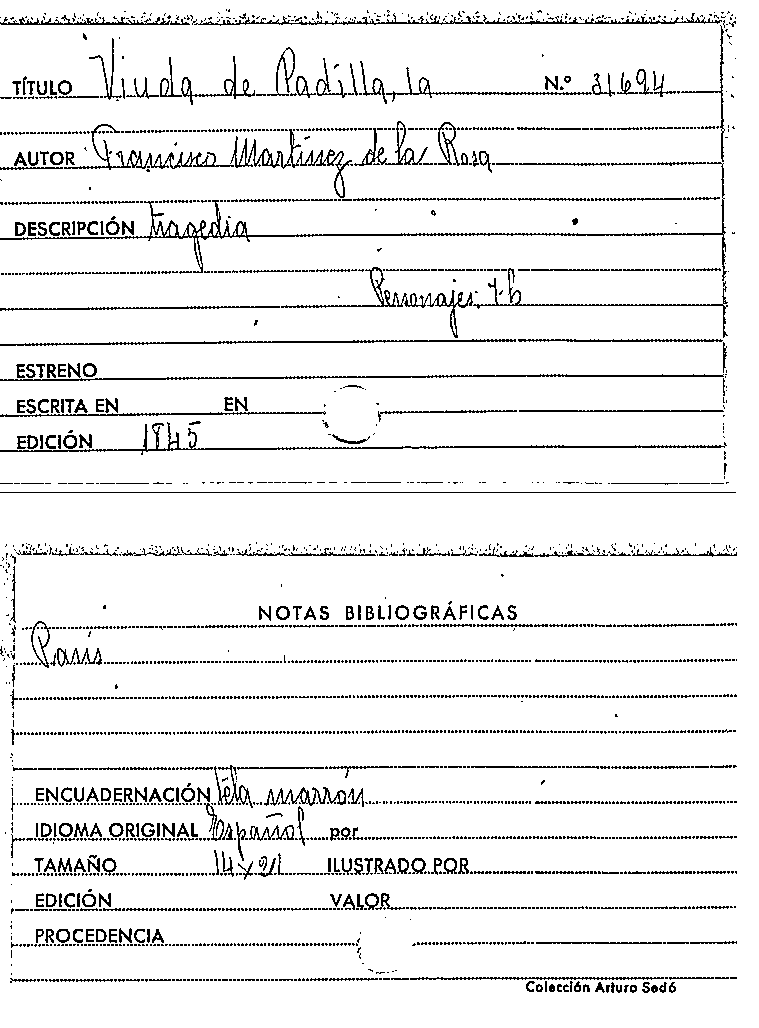 TÍTULO Viuda de Padilla, la N.º 31694
AUTOR Francisco Martínez de la Rosa
DESCRIPCIÓN tragedia
Personajes: 7-b
ESTRENO
ESCRITA EN EN
EDICIÓN 1845
NOTAS BIBLIOGRÁFICAS
París
ENCUADERNACIÓN tela marrón
IDIOMA ORIGINAL Español por
TAMAÑO 14x21 ILUSTRADO POR
EDICIÓN VALOR
PROCEDENCIA
Colección Arturo Sedó